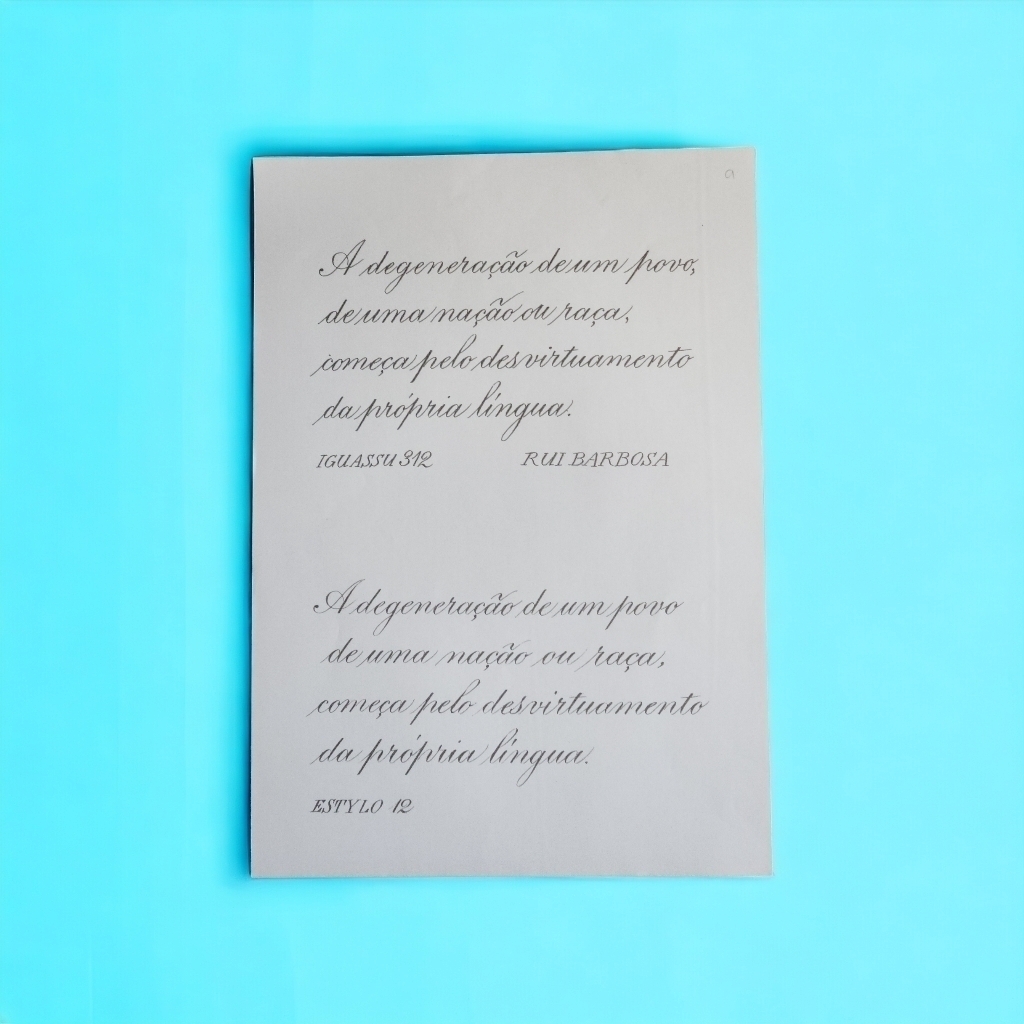 a
A degeneração de um povo,
de uma nação ou raça,
começa pelo desvirtuamento
da própria língua.
IGUASSU 312 RUI BARBOSA
A degeneração de um povo
de uma nação ou raça,
começa pelo desvirtuamento
da própria língua.
ESTYLO 12